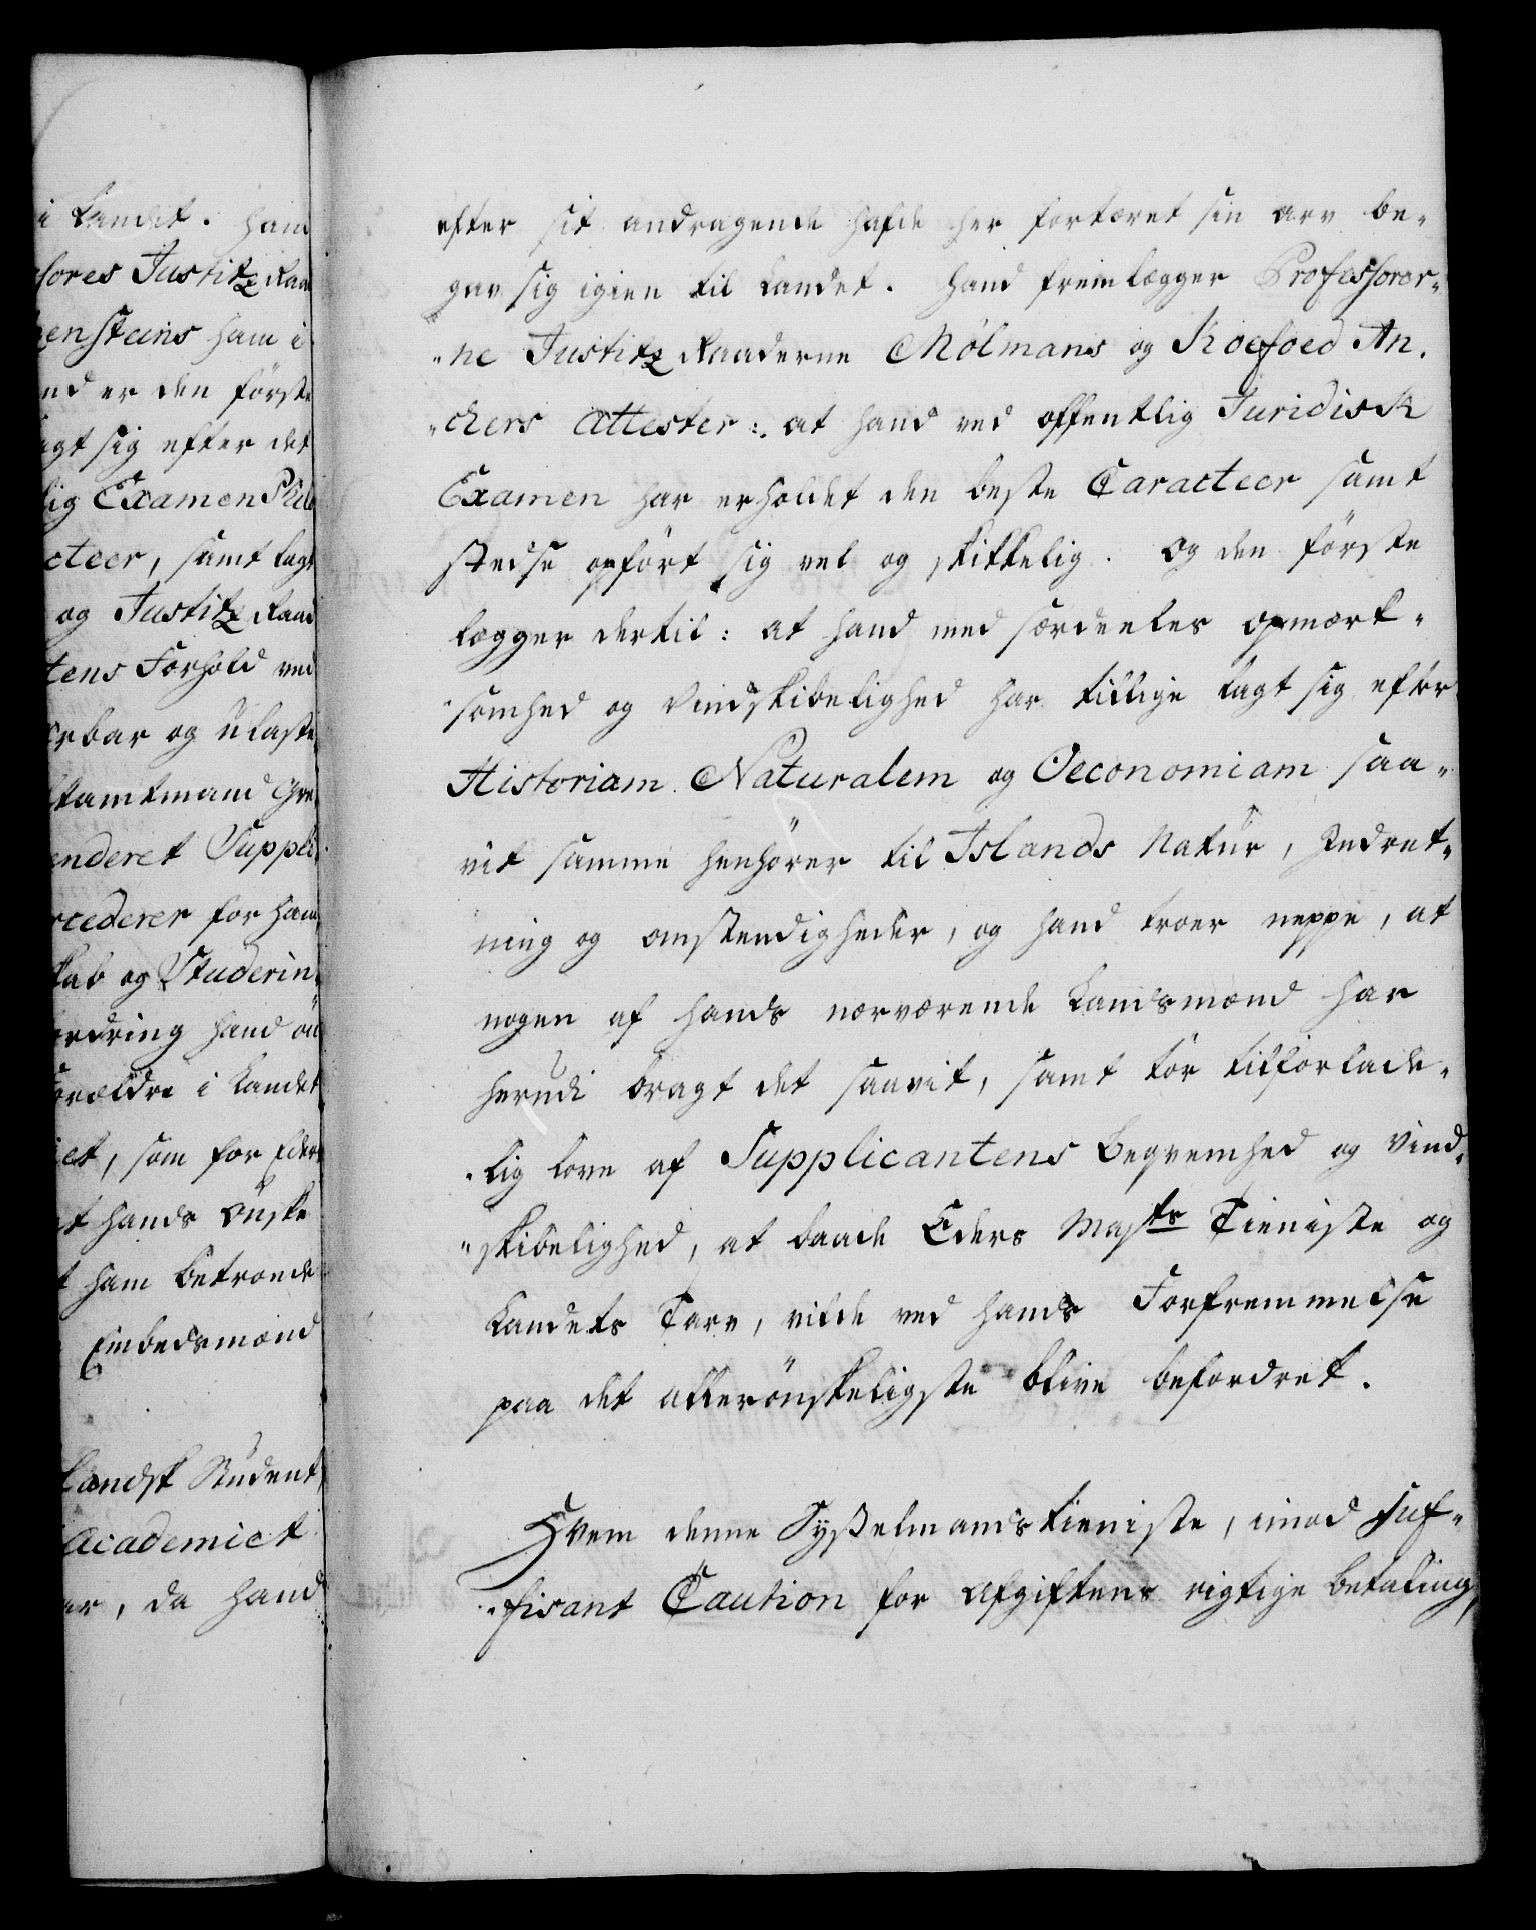 i Landet. Hand
sores Justitz Raa
ensteins ham i
nd er den förste
agt sig efter det
lig Examen Phil
cteer, samt lagt
og Justitz Raad
tens Forhold ved
erbar og ulaste
tamtmand Gre
enderet Suppli
rcederer for ham
kab og Studerin
ordring hand ön
foreldre i Landet
iet, som for Eders
t hands Önske
t ham betroede
Embedsmænd
landsk Student
Academiet
ar, da hand
efter sit andragende hafde her fortæret sin arv be-
gav sig igien til Landet. Hand fremlægger Professorer-
ne Justitz Raaderne Mölmans og Koefoed An-
chers Attester: at hand ved offentlig Juridisk
Examen har erholdet den beste Caracteer samt
stedse opfört sig vel og skikkelig. Og den förste
lægger dertil: at hand med særdeeles opmærk-
somhed og Vindskibelighed har tillige lagt sig efter
Historiam Naturalem og Oeconomiam saa-
vit samme henhörer til Islands Natur, Indret-
ning og omstendigheder, og hand troer neppe, at
nogen af hands nærværende Landsmænd har
herudi bragt det saavit, samt tör tilforlade-
lig love af Supplicantens Beqvemhed og Vind-
skibelighed, at baade Eders Majts Tieniste og
Landets Tarv, vilde ved hands Forfremmelse
paa det allerönskeligste blive befordret.
Hvem denne Sysselmands tieniste, imod suf-
fisant Caution for Afgiftens rigtige betaling,